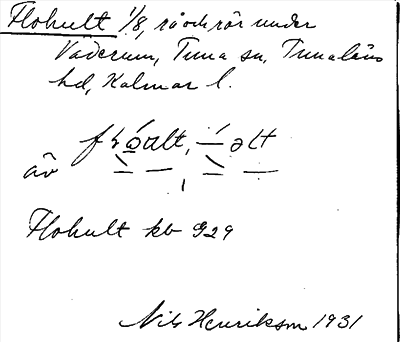 Flohult 1/8, rå och rör under
Väderum, Tuna sn, Tunaläns
hd, Kalmar l.
äv
Flohult kb 929
Nils Henrikson 1931